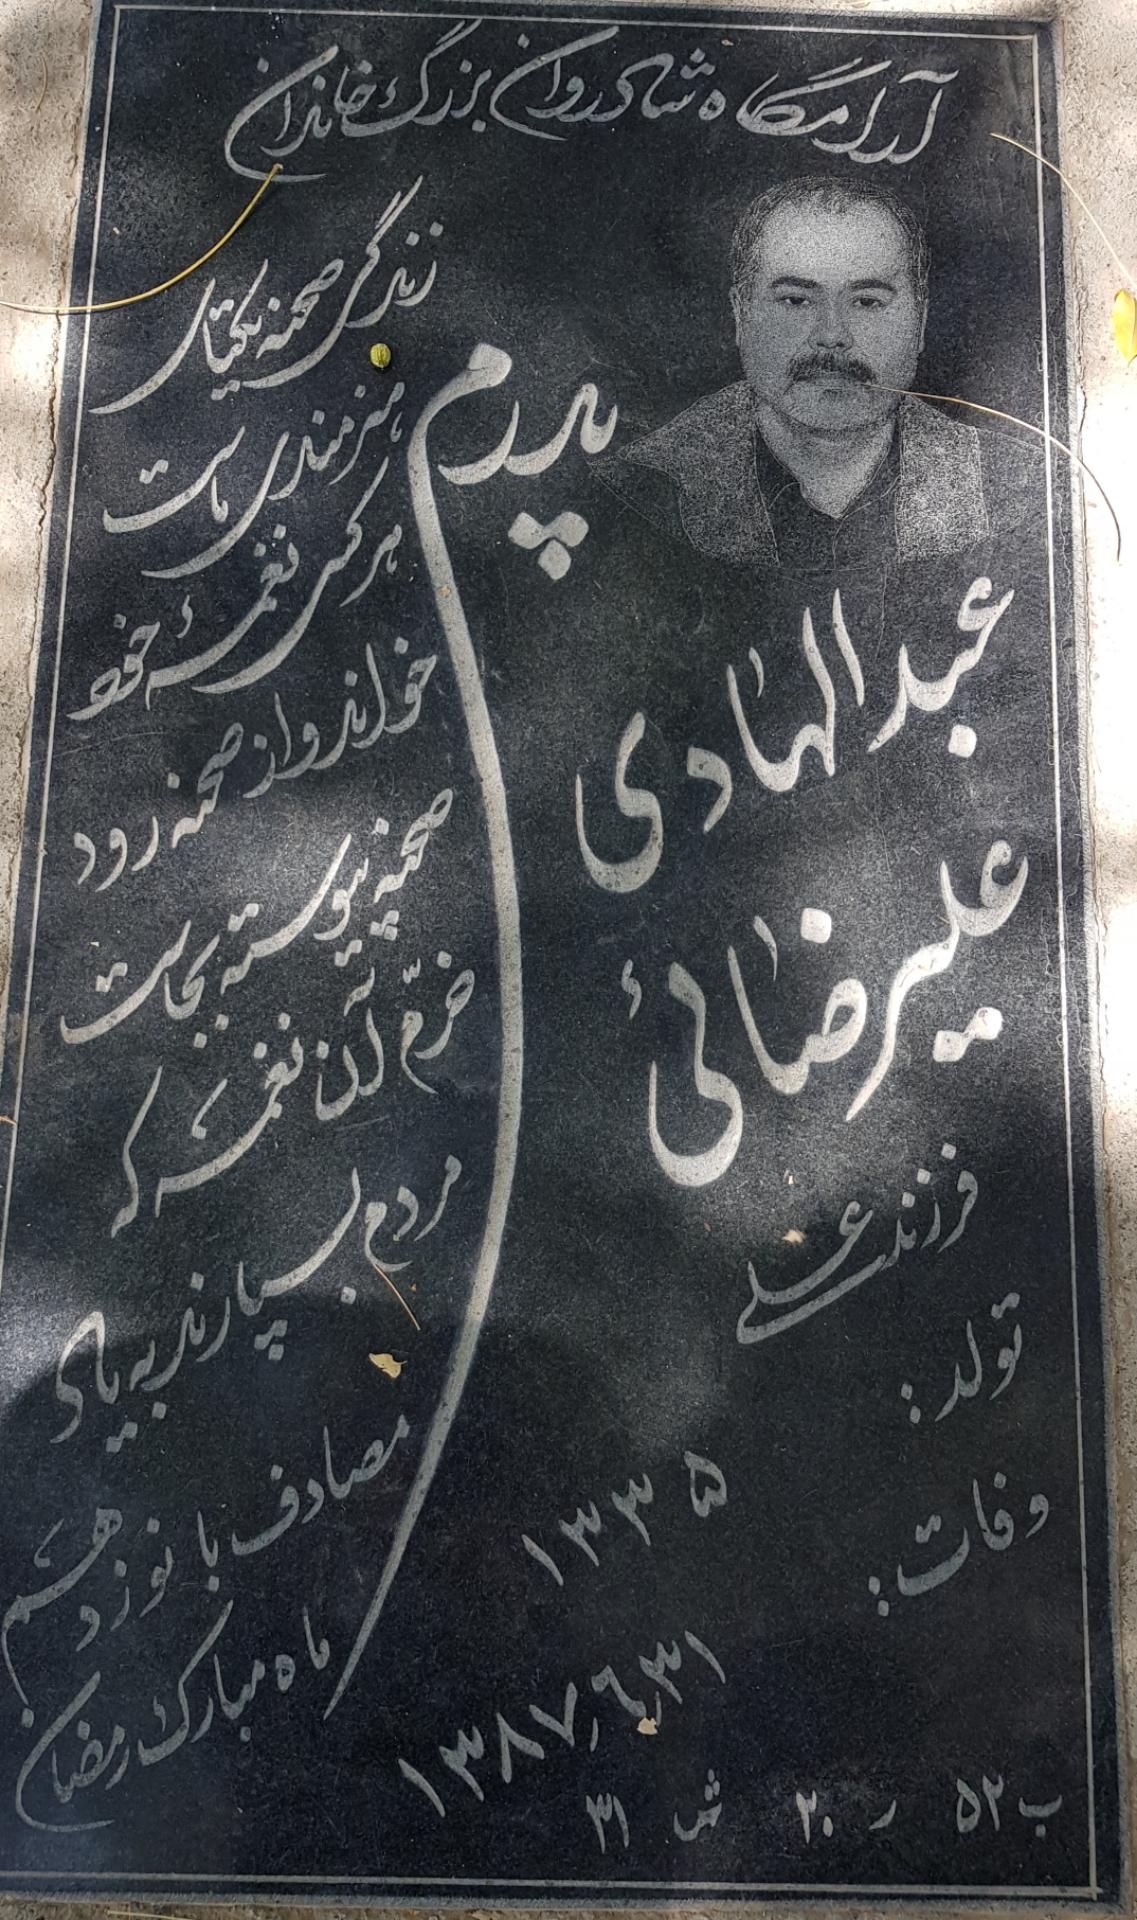 آرامگاه شادروان بزرگ خاندان
پدرم
عبدالهادی
علیرضائی
فرزند علی
تولد:
۱۳۳۵
وفات:
۱۳۸۷٫۶٫۳۱
زندگی صحنه یکتای
هنرمندی ماست
هر کسی نغمهٔ خود
خواند و از صحنه رود
صحنه پیوسته بجاست
خرّم آن نغمه که
مردم بسپارند به یاد
مصادف با نوزدهم
ماه مبارک رمضان
ب ۵۲ ر ۲۰ ش ۳۱